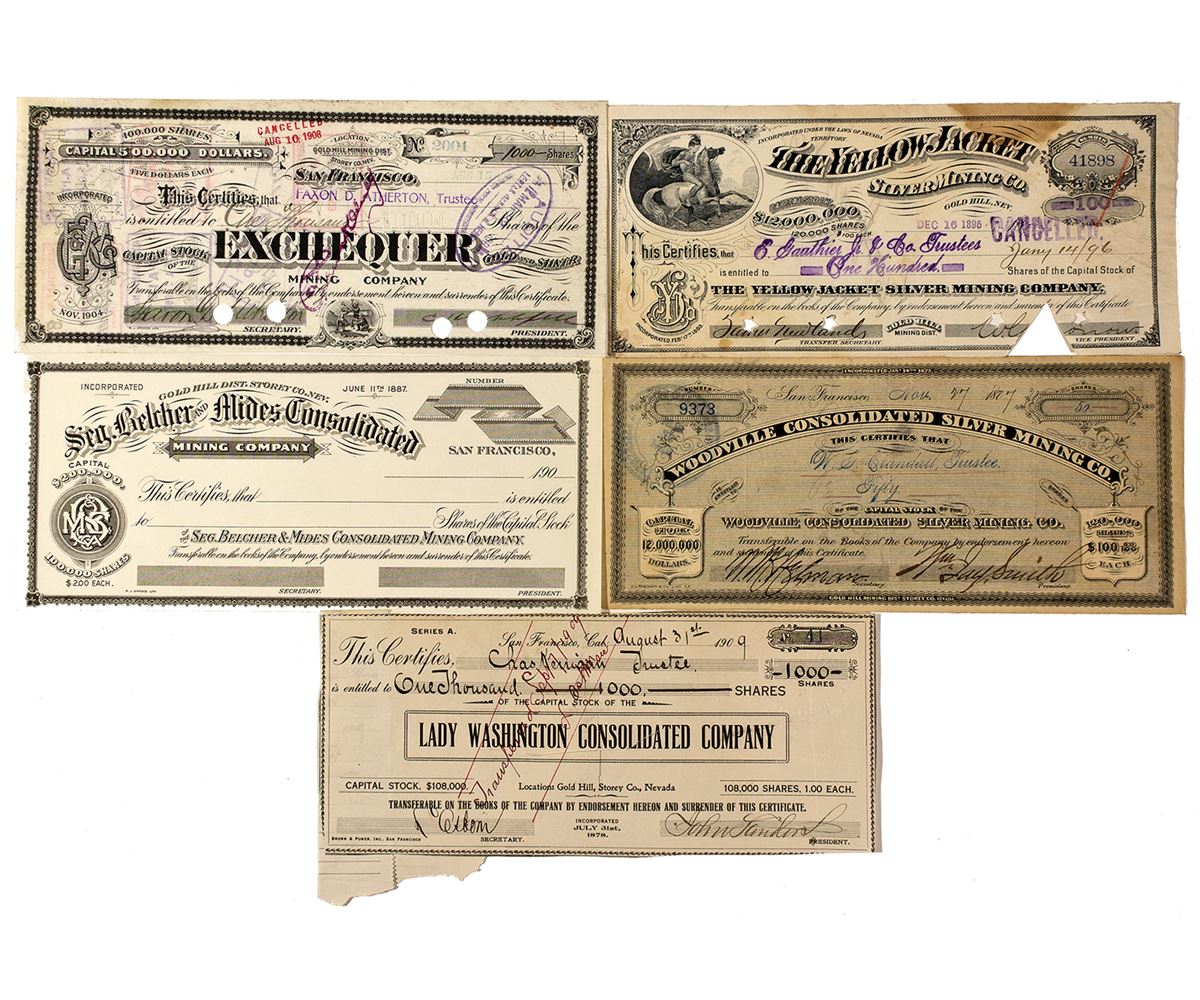 100,000 SHARES
CAPITAL 500,000 DOLLARS.
FIVE DOLLARS EACH
CANCELLED
AUG 10 1908
LOCATION
GOLD HILL MINING DIST.
STOREY CO. NEV.
No 2001
1000 Shares
SAN FRANCISCO,
INCORPORATED
This Certifies, that
FAXON D. ATHERTON, Trustee
is entitled to
Shares of the
CAPITAL STOCK
OF THE
EXCHEQUER
GOLD AND SILVER
MINING COMPANY
Transferable on the books of the Company by endorsement hereon and surrender of this Certificate.
NOV. 1904
SECRETARY.
PRESIDENT.
INCORPORATED UNDER THE LAWS OF NEVADA
TERRITORY
THE YELLOW JACKET
SILVER MINING CO.
GOLD HILL, NEV.
NUMBER
41898
100
$12,000,000.
120,000 SHARES
$100 EACH
DEC 16 1895
CANCELLED.
This Certifies, that
E. Gauthier Jr. & Co. Trustees
Jany 14/96
is entitled to
One Hundred
Shares of the Capital Stock of
THE YELLOW JACKET SILVER MINING COMPANY,
Transferable on the books of the Company, by endorsement hereon and surrender of this Certificate
James Newlands
GOLD HILL
MINING DIST.
TRANSFER SECRETARY
VICE PRESIDENT
INCORPORATED
GOLD HILL DIST. STOREY CO. NEV.
JUNE 11TH 1887.
NUMBER
Seg. Belcher AND Mides Consolidated
MINING COMPANY
SAN FRANCISCO,
190
CAPITAL
$200,000.
This Certifies, that
is entitled
to
Shares of the Capital Stock
OF THE SEG. BELCHER & MIDES CONSOLIDATED MINING COMPANY.
Transferable on the books of the Company, by endorsement hereon and surrender of this Certificate.
100,000 SHARES
$2.00 EACH.
SECRETARY.
PRESIDENT.
NUMBER
9373
San Francisco, Nov 27 1877
SHARES
50
WOODVILLE CONSOLIDATED SILVER MINING CO.
THIS CERTIFIES THAT
W. L. Crandall, Trustee.
IS ENTITLED TO
Fifty
SHARES
OF THE CAPITAL STOCK OF THE
WOODVILLE, CONSOLIDATED SILVER MINING, CO.
CAPITAL
STOCK
12,000,000
DOLLARS.
Transferable on the Books of the Company by endorsement hereon
and surrender of this Certificate.
120,000
SHARES
$100
EACH
Secretary.
Wm Jay Smith
President
GOLD HILL MINING DIST. STOREY CO. NEVADA
SERIES A.
San Francisco, Cal. August 31st 1909
No. 41
This Certifies,
Trustee
1000
SHARES
is entitled to One Thousand 1000, SHARES
OF THE CAPITAL STOCK OF THE
LADY WASHINGTON CONSOLIDATED COMPANY
CAPITAL STOCK, $108,000.
Location: Gold Hill, Storey Co., Nevada
108,000 SHARES, 1.00 EACH.
TRANSFERABLE ON THE BOOKS OF THE COMPANY BY ENDORSEMENT HEREON AND SURRENDER OF THIS CERTIFICATE.
INCORPORATED
JULY 31st,
1878.
BROWN & POWER, INC., SAN FRANCISCO
SECRETARY.
PRESIDENT.